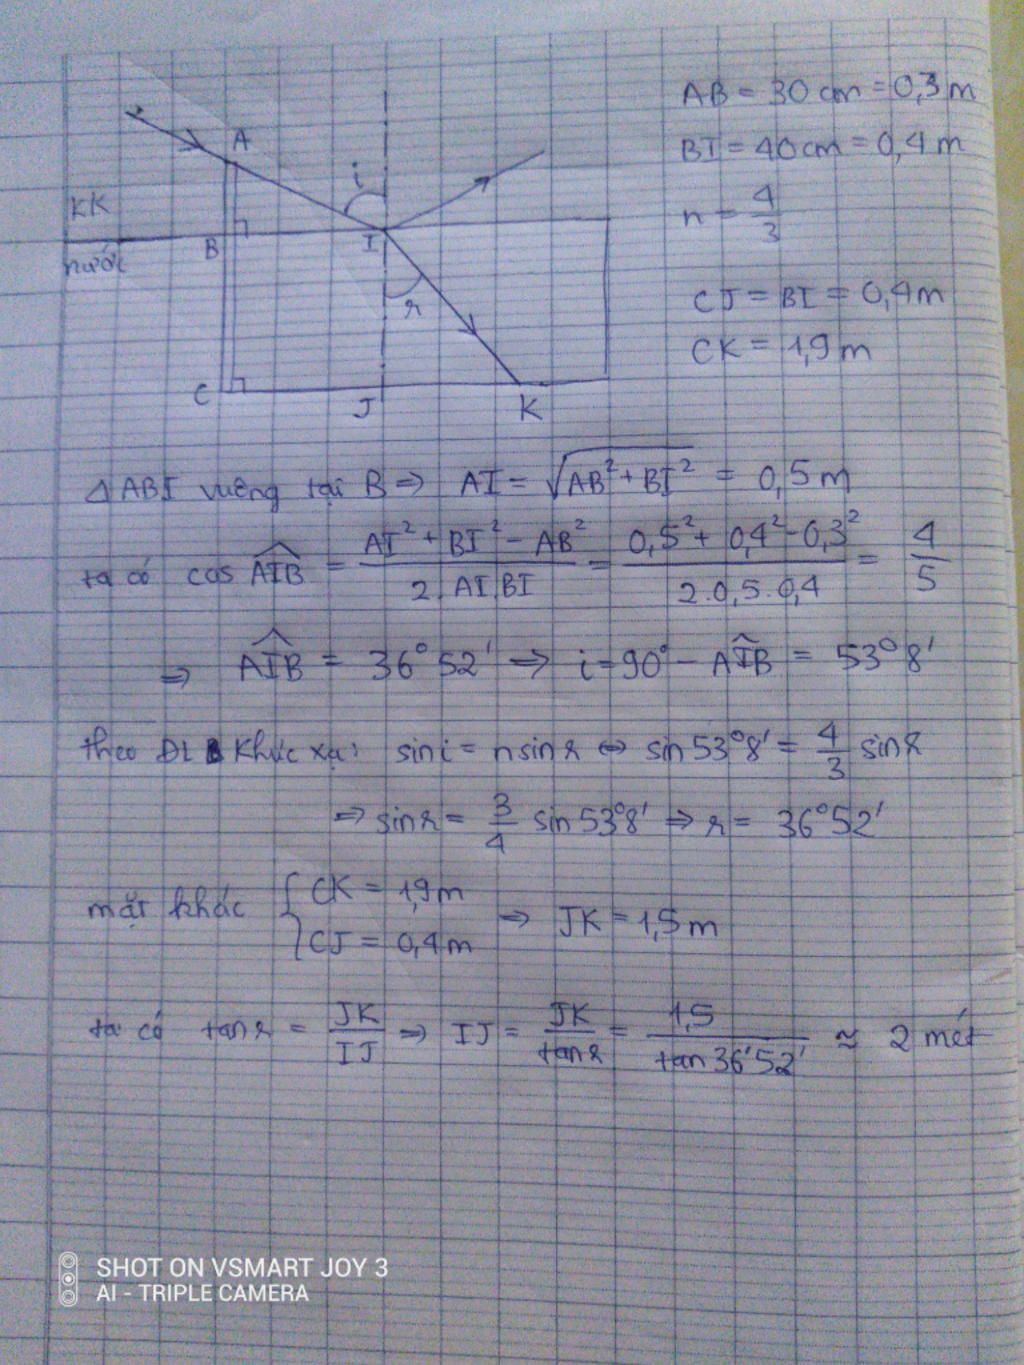 AB = 30 cm = 0,3 m
A
BI = 40 cm = 0,4 m
i
KK
n = 4/3
B
I
nước
r
CJ = BI = 0,4 m
CK = 1,9 m
C
J
K
Δ ABI vuông tại B ⇒ AI = √(AB² + BI²) = 0,5 m
ta có cos AIB = (AI² + BI² - AB²)/(2.AI.BI) = (0,5² + 0,4² - 0,3²)/(2.0,5.0,4) = 4/5
⇒ AIB = 36°52' ⇒ i = 90° - AIB = 53°8'
theo ĐL Khúc xạ: sin i = n sin r ⇔ sin 53°8' = 4/3 sin r
⇒ sin r = 3/4 sin 53°8' ⇒ r = 36°52'
mặt khác { CK = 1,9 m
CJ = 0,4 m ⇒ JK = 1,5 m
ta có tan r = JK/IJ ⇒ IJ = JK/tan r = 1,5/tan 36°52' ≈ 2 mét
SHOT ON VSMART JOY 3
AI - TRIPLE CAMERA